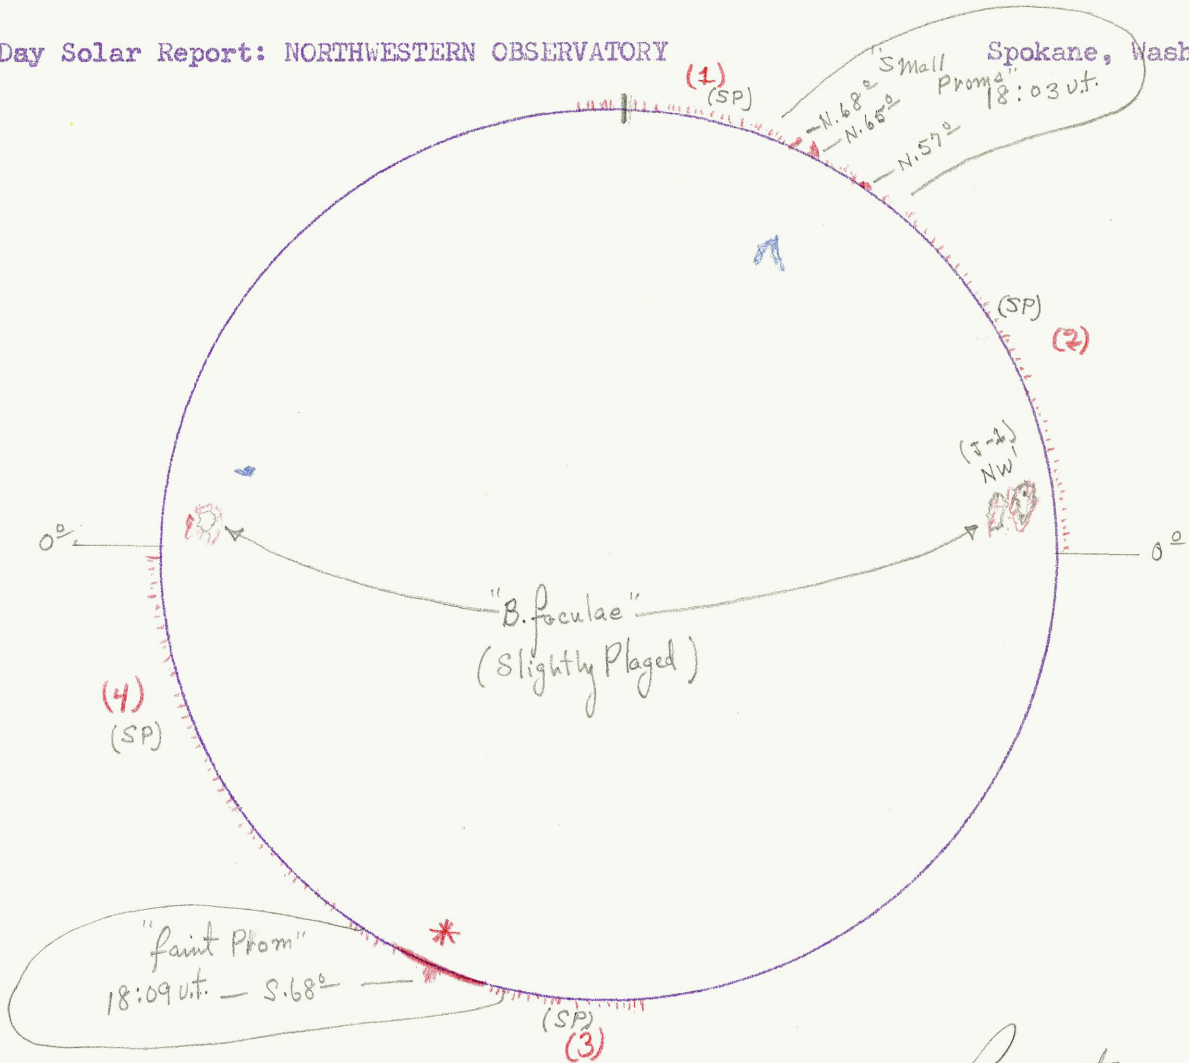 Day Solar Report: NORTHWESTERN OBSERVATORY Spokane, Wash
(1)
(SP)
"Small
Proms"
18:03 u.t.
N.68º
N.65º
N.57º
(SP)
(2)
(J-1)
NW'
0º
0º
"B. foculae"
(Slightly Plaged)
(4)
(SP)
*
"faint Prom"
18:09 u.t. — S.68º —
(SP)
(3)